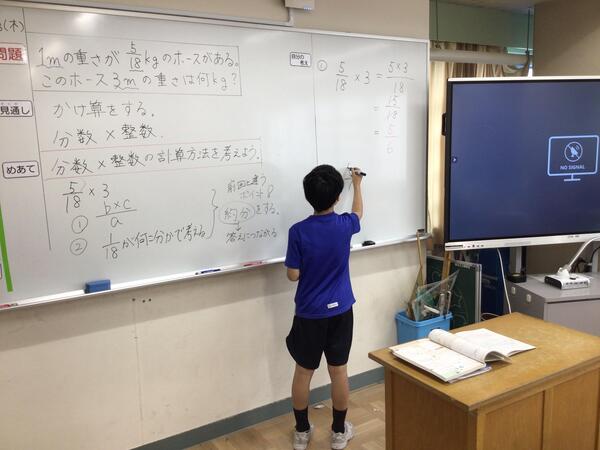 (木)
問題
1mの重さが 5/18 kgのホースがある。
このホース3mの重さは何kg?
見通し
かけ算をする。
分数×整数.
めあて
分数×整数の計算方法を考えよう。
5/18 × 3
① b×c/a
② 1/18が何こ分かで考える
前回と違う
ポイント
約分をする。
答えにつながる
自分の考え
① 5/18 × 3 = 5×3/18
= 15/18
= 5/6
NO SIGNAL